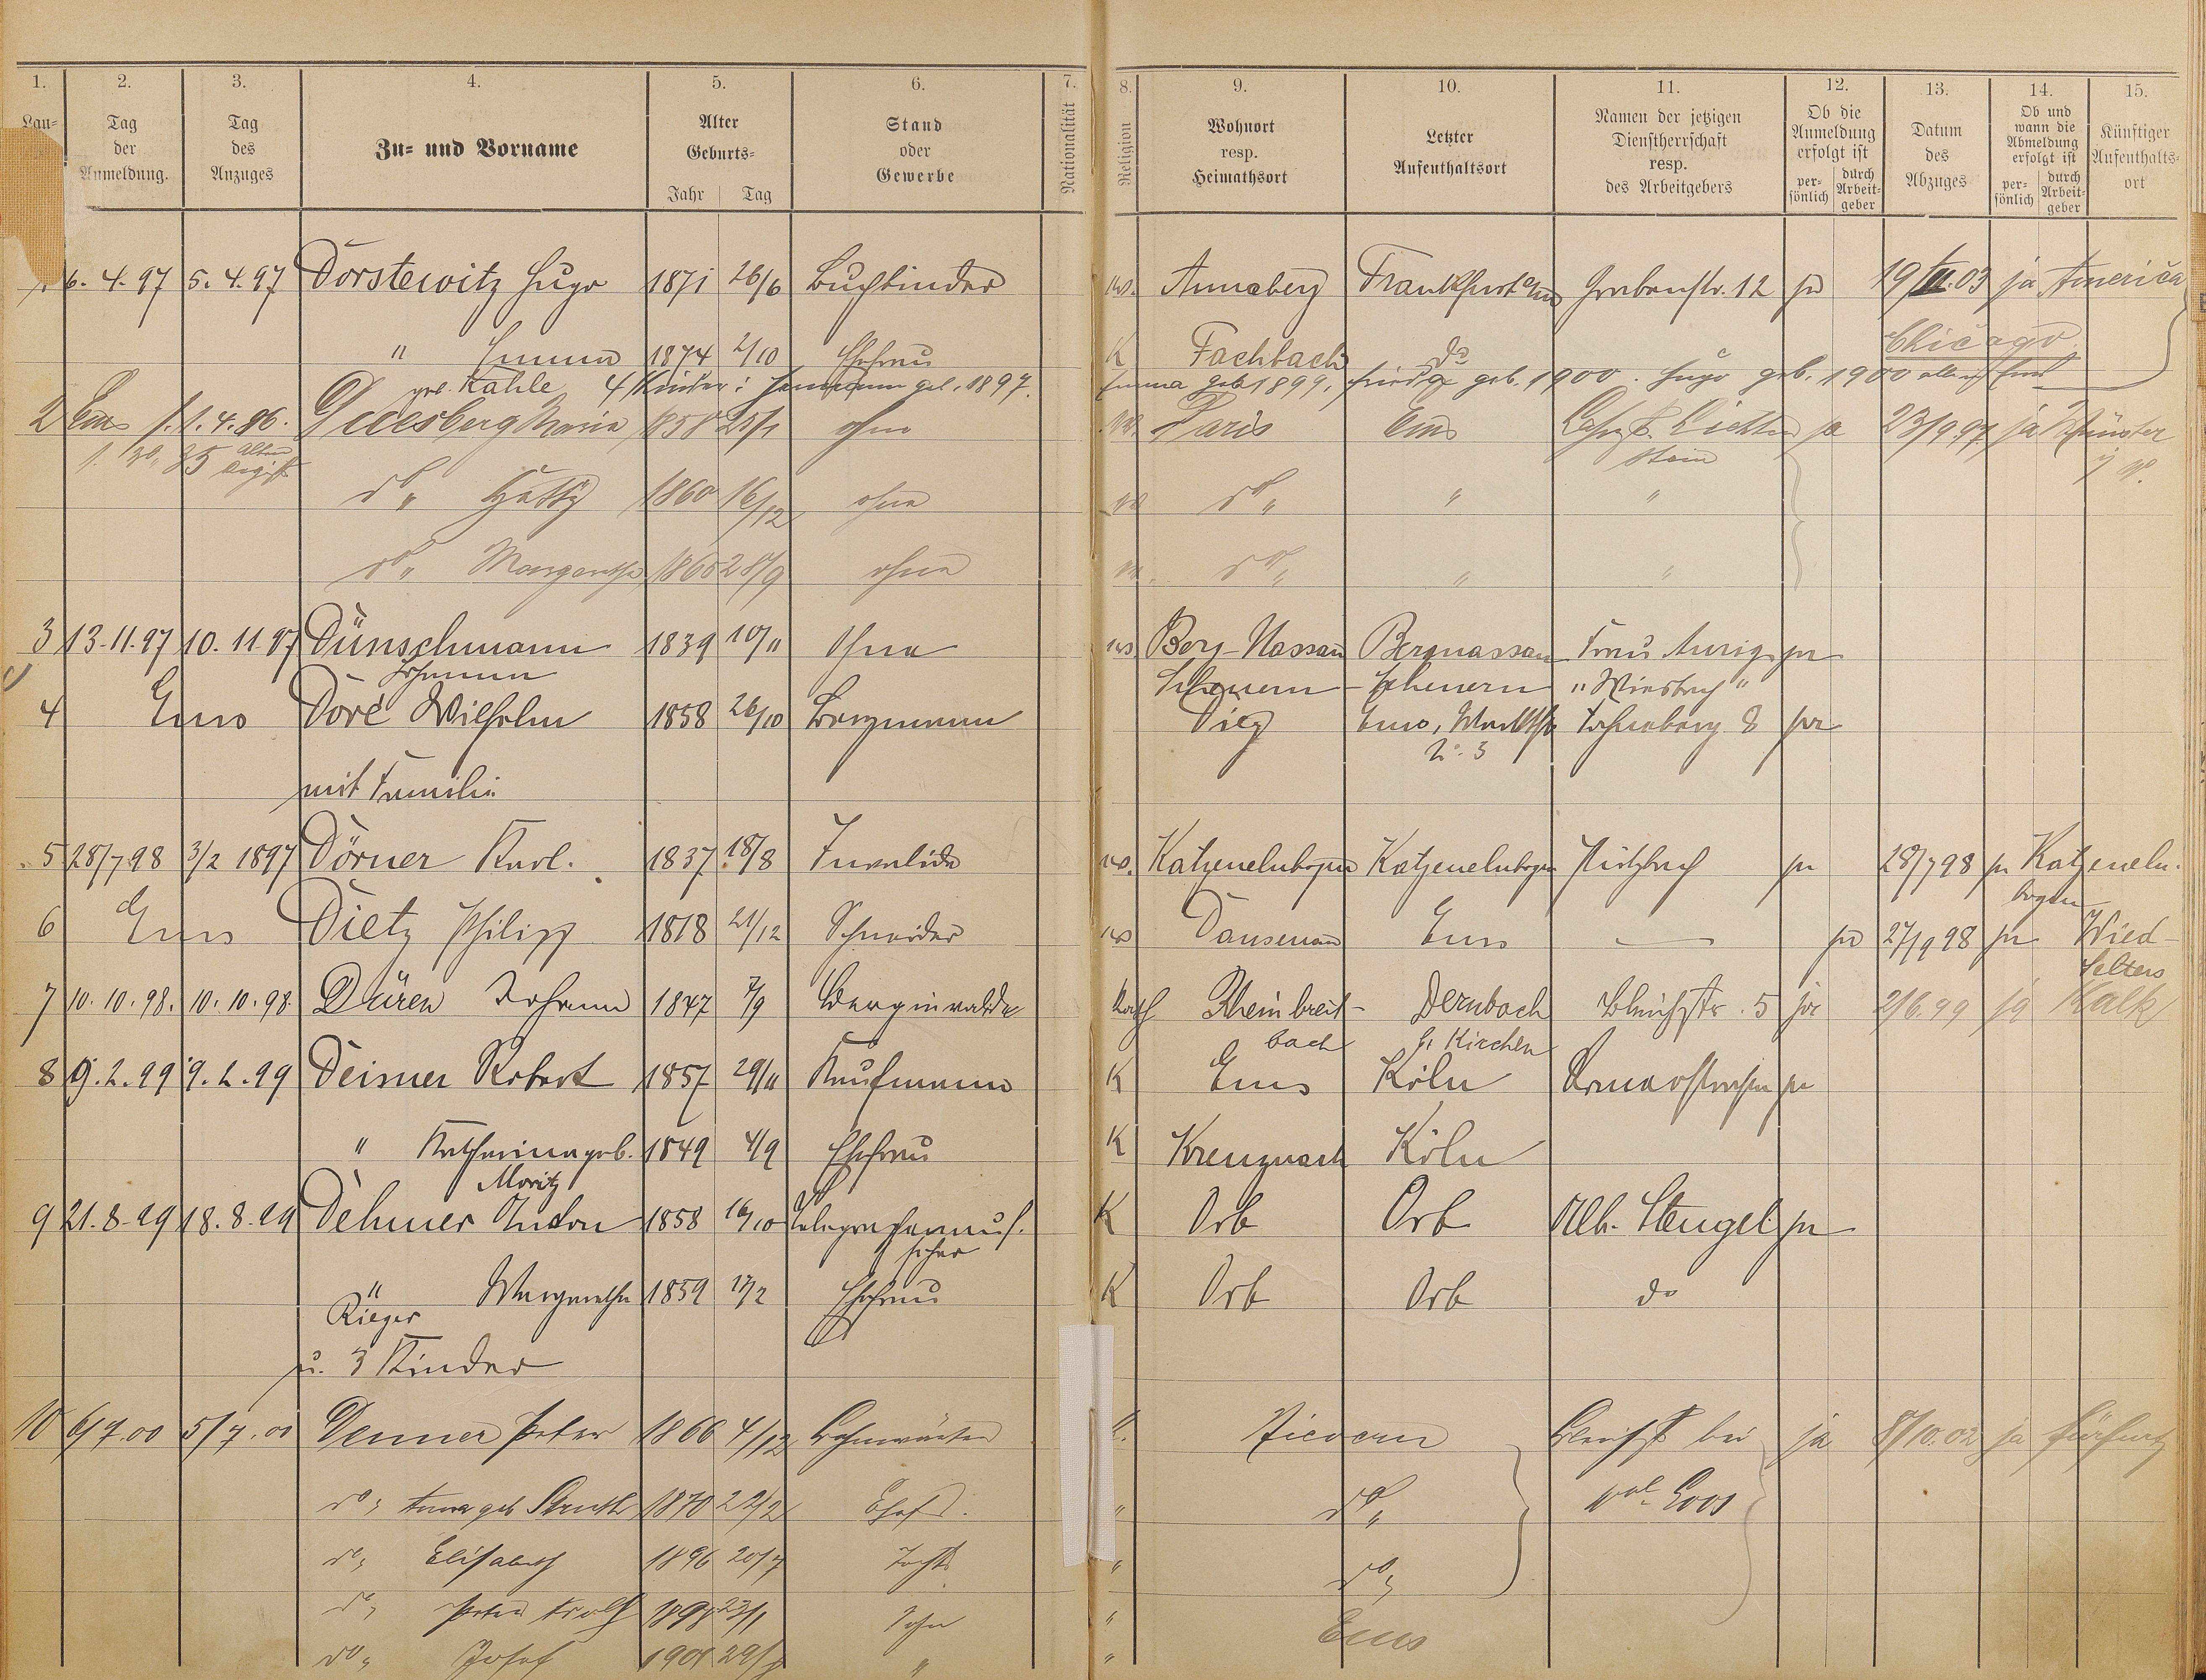 1. 2. 3. 4. 5. 6. 7. 8. 9. 10. 11. 12. 13. 14. 15.
Lau=
Tag der Anmeldung.
Tag des Anzuges
Zu= und Vorname
Alter Geburts= Jahr Tag
Stand oder Gewerbe
Nationalität
Religion
Wohnort resp. Heimathsort
Letzter Aufenthaltsort
Namen der jetzigen Dienstherrschaft resp. des Arbeitgebers
Ob die Anmeldung erfolgt ist per= sönlich durch Arbeit= geber
Datum des Abzuges
Ob und wann die Abmeldung erfolgt ist per= sönlich durch Arbeit= geber
Künftiger Aufenthalts= ort
1. 6. 4. 97 5. 4. 97 Dorstewitz Hugo 1871 26/6 Buchbinder ev. Annaberg Frankfurt a/m Grabenstr. 12 ja 19/III.03 ja America
" Emma 1874 2/10 Ehefrau K Fachbach do Chicago
geb. Kahle 4 Kinder: geb. 1897. Emma geb. 1899, geb. 1900. Hugo geb. 1900
2 Ems 1.4.86. Maria 1858 25/1 ohne ev. Paris Ems ja 23/9.97 ja Münster
1. No. 35 Altes Regist. stein i/W.
do " Hetty 1860 16/12 ohne ev. do " " "
do " Margarethe 28/9 ohne ev. do " " "
3 13.11.97 10.11.97 Dünschmann 1839 10/11 Ohne ev. Berg-Nassau Bergnassau Frau ja
Johanna Scheuern - Scheuern "Wiesbach"
4 Ems Doré Wilhelm 1858 26/10 Bergmann Diez Ems, 8 ja
No. 3
mit Familie
5 28/7 98 3/2 1897 Dörner Karl. 1837 18/8 Invalide ev. Katzenelnbogen Katzenelnbogen ja 28/7 98 ja Katzeneln-
bogen
6 Ems Dietz Philipp 1818 21/12 Schneider ev Dausenau Ems — ja 27/9 98 ja Wied-
Selters
7 10. 10. 98. 10. 10. 98. Düren Johann 1847 7/9 Berginvalide Kath Rheinbreit- Dernbach Bleichstr. 5 ja 2/6.99 ja Kalk
bach b. Kirchen
8 9. 2. 99 9. 2. 99 Deisner Robert 1857 29/11 Kaufmann K Ems Köln Römerstrasse ja
" Katharina geb. 1849 4/9 Ehefrau K Kreuznach Köln
Moritz
9 21. 8. 99 18. 8. 99 Dehmer Anton 1858 16/10 Telegraphenauf- K Orb Orb Alb. Stengel ja
seher
" Margarethe 1859 17/2 Ehefrau K Orb Orb do
Rieger
u. 3 Kinder
10 6/7.00 5/7.00 Denner Peter 1866 4/12 Bahnwärter K. Nievern Bleichst bei ja 8/10.02 ja
do " Anna geb Struth 1870 22/2 Ehef. " do " Loos
do " Elisabeth 1896 20/7 Tocht. " do "
do " Peter 1898 23/1 Sohn " Ems
do " Josef 1901 " "